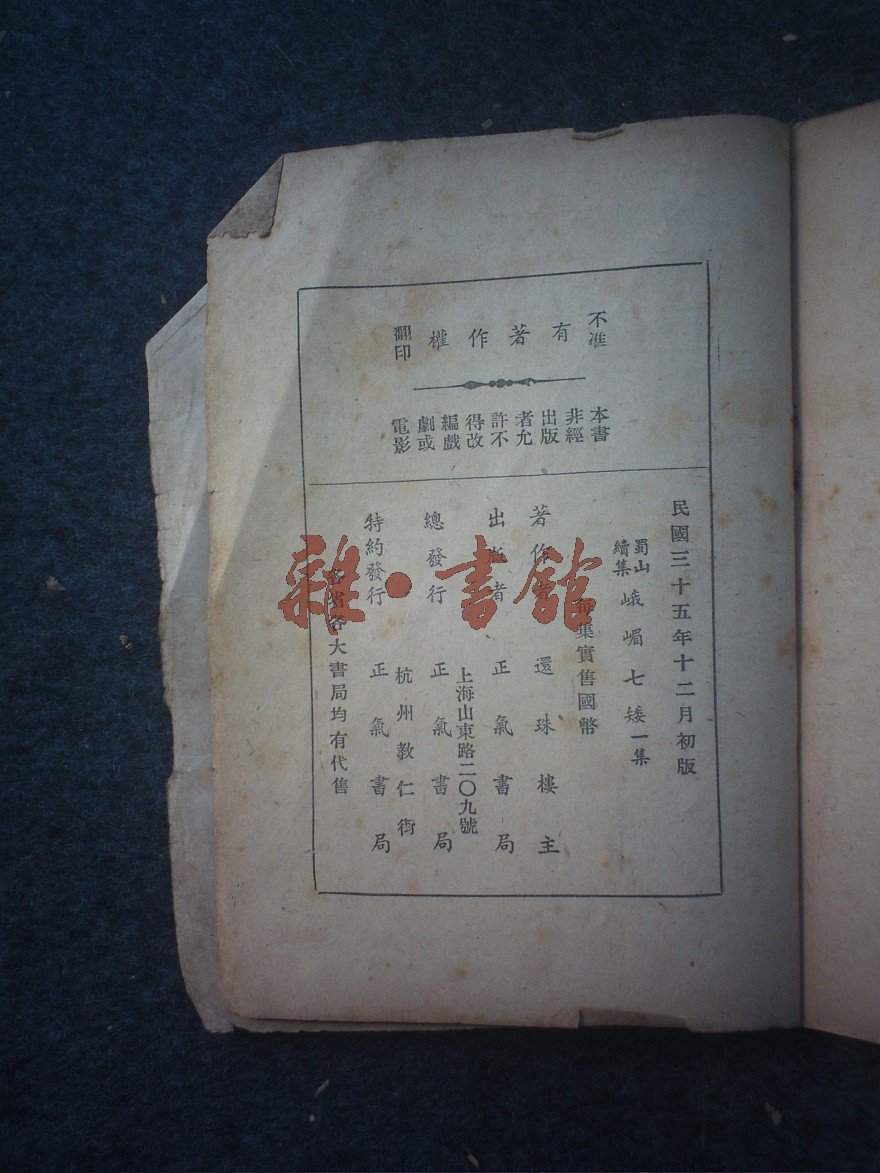 不准 有著作權 翻印
本書非經出版者允許不得改編戲劇或電影
民國三十五年十二月初版
蜀山續集 峨嵋七矮 一集
每集實售國幣
著作者 還珠樓主
出版者 正氣書局
上海山東路二〇九號
總發行 正氣書局
杭州教仁街
特約發行 正氣書局
各省各大書局均有代售
雜·書館